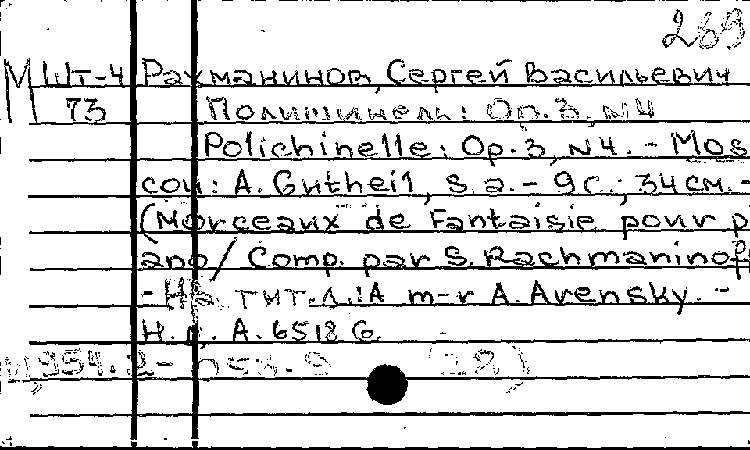 269
М Шт-4 Рахманинов, Сергей Васильевич
73 Полишинель: Op.3, N4
Polichinelle: Op.3, N4. - Mos
cou: A. Gutheil, s.a. - 9 с.; 34 см. -
(Morceaux de Fantaisie pour pi
ano / Comp. par S. Rachmaninoff
- На тит.л.: A m-r A. Arensky. -
Н.д. A.6518 G.